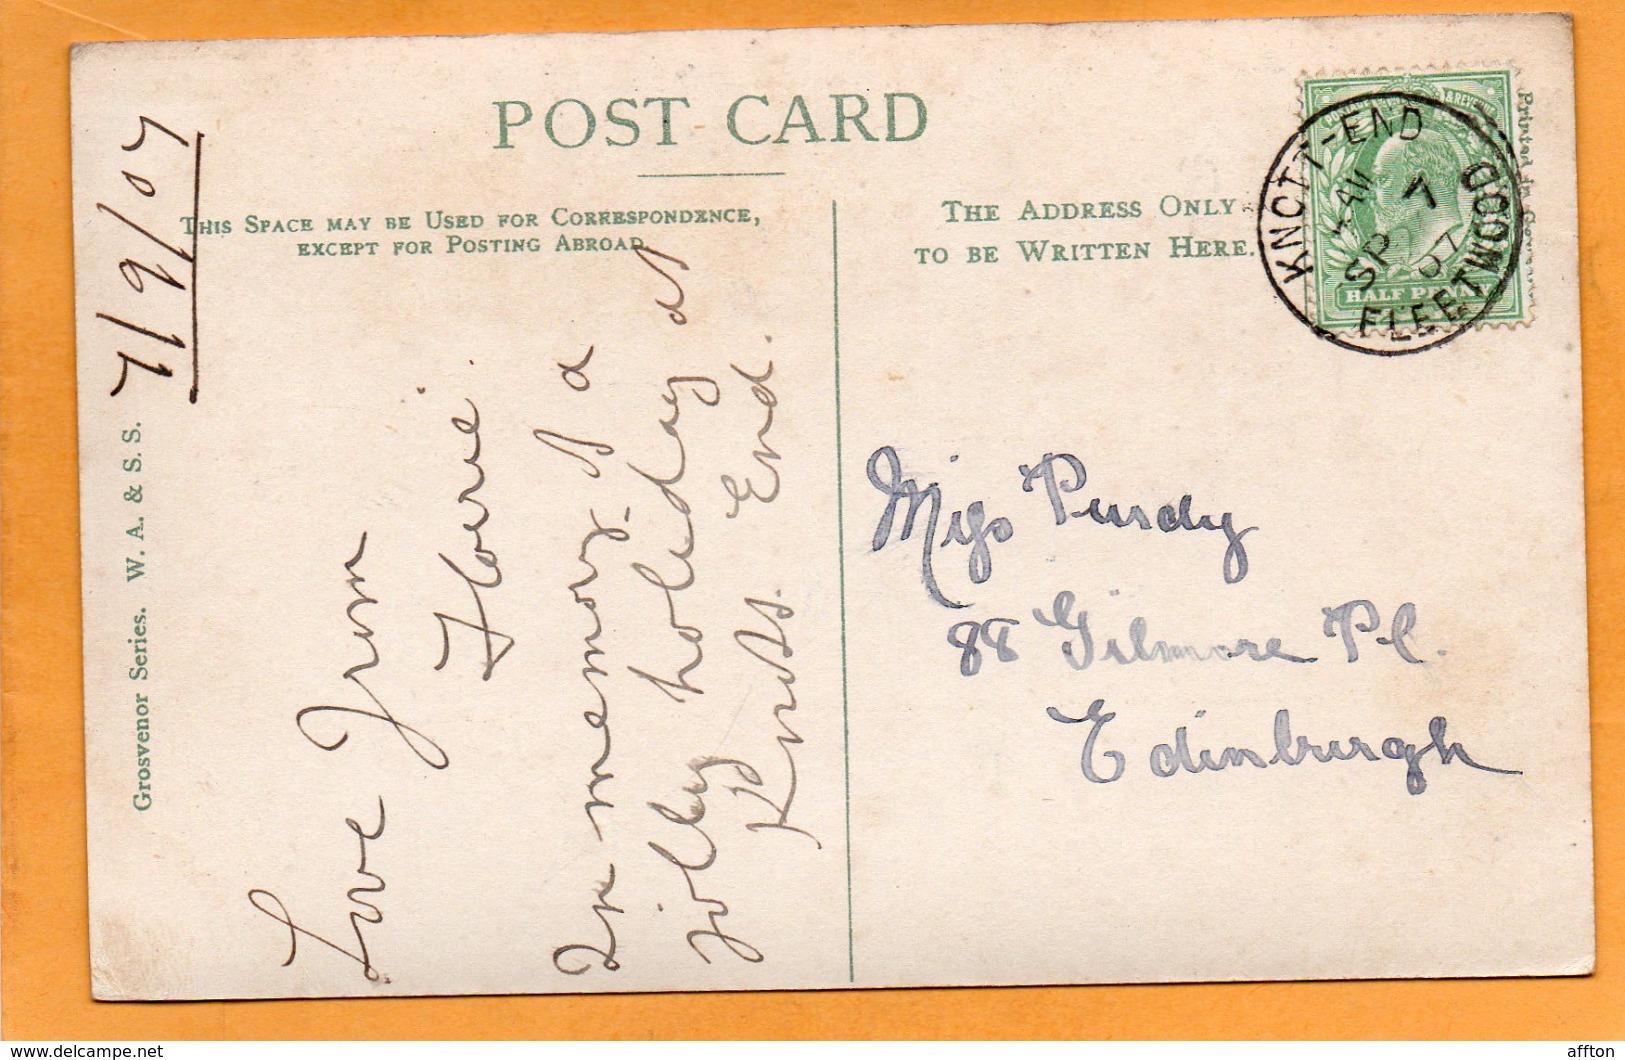 POST CARD
THIS SPACE MAY BE USED FOR CORRESPONDENCE,
EXCEPT FOR POSTING ABROAD.
THE ADDRESS ONLY
TO BE WRITTEN HERE.
HALF PENNY
& REVENUE
KNOTT-END
SP 7
07
FLEETWOOD
Printed in
7/9/07
Grosvenor Series. W. A. & S. S.
Love from
Florrie.
In memory of a
jolly holiday at
Knott. End.
Miss Purdy
88 Gilmore Pl.
Edinburgh
delcampe.net
affton